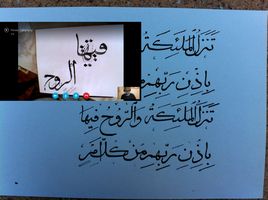 فيها
الروح
تنزل الملئكة
بإذن ربهم
تنزل الملئكة والروح فيها
بإذن ربهم من كل أمر